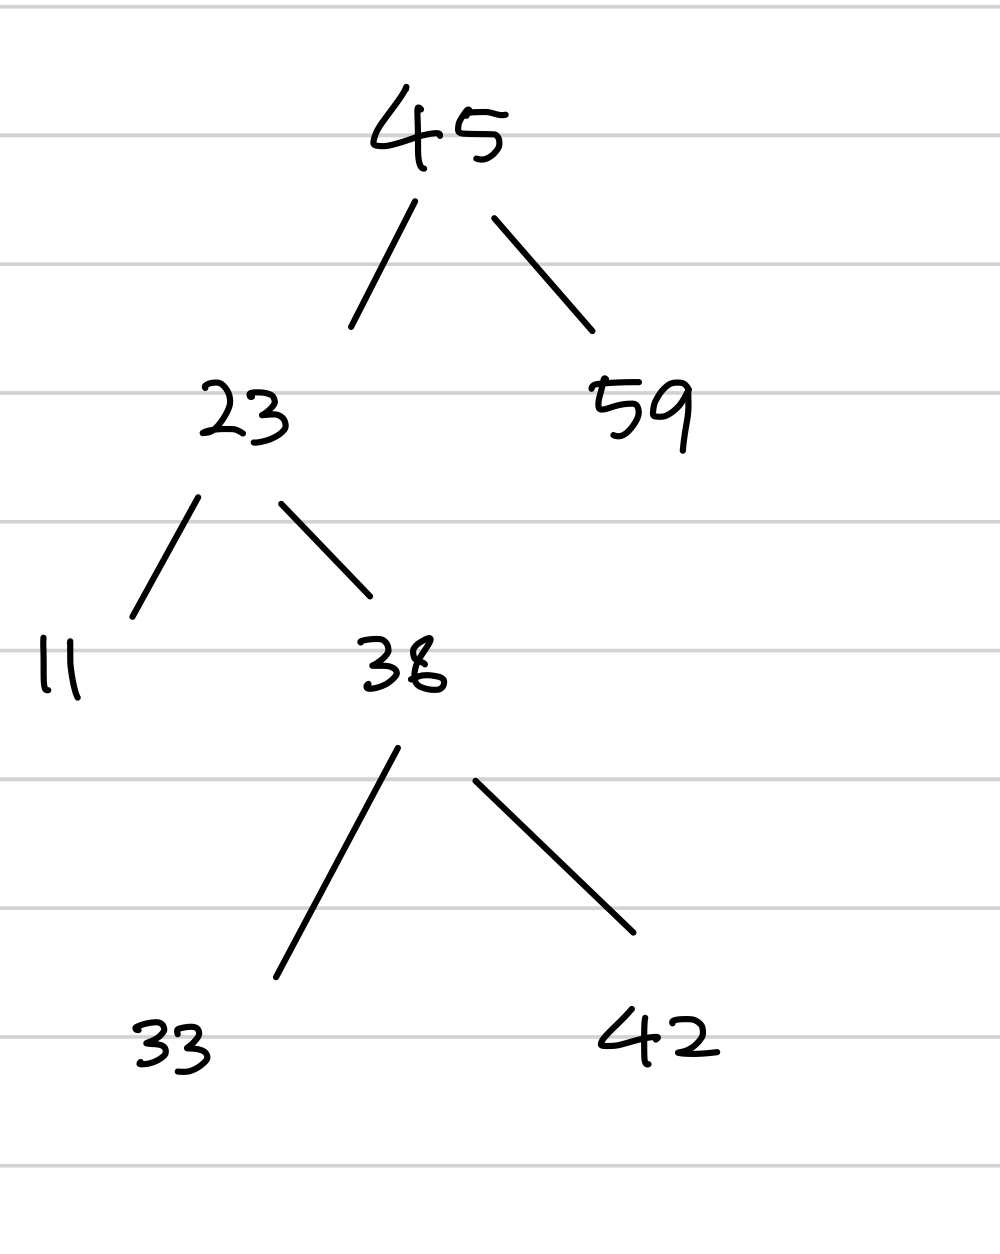 45
23 59
11 38
33 42